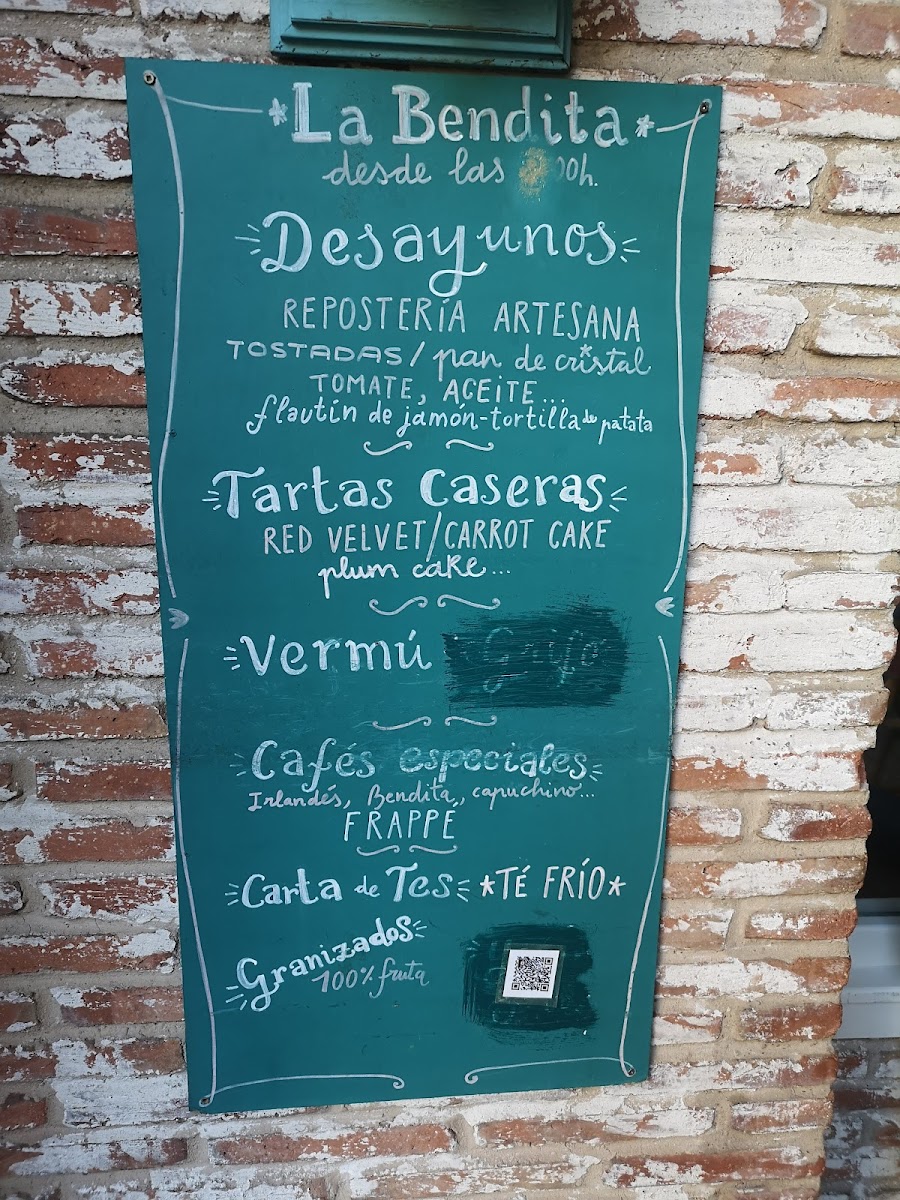 La Bendita
desde las 00h.
Desayunos
REPOSTERÍA ARTESANA
TOSTADAS / pan de cristal
TOMATE, ACEITE...
flautín de jamón-tortilla de patata
Tartas caseras
RED VELVET/CARROT CAKE
plum cake...
Vermú
Cafés especiales
Irlandés, Bendita, capuchino...
FRAPPÉ
Carta de Tes *TÉ FRÍO*
Granizados
100% fruta